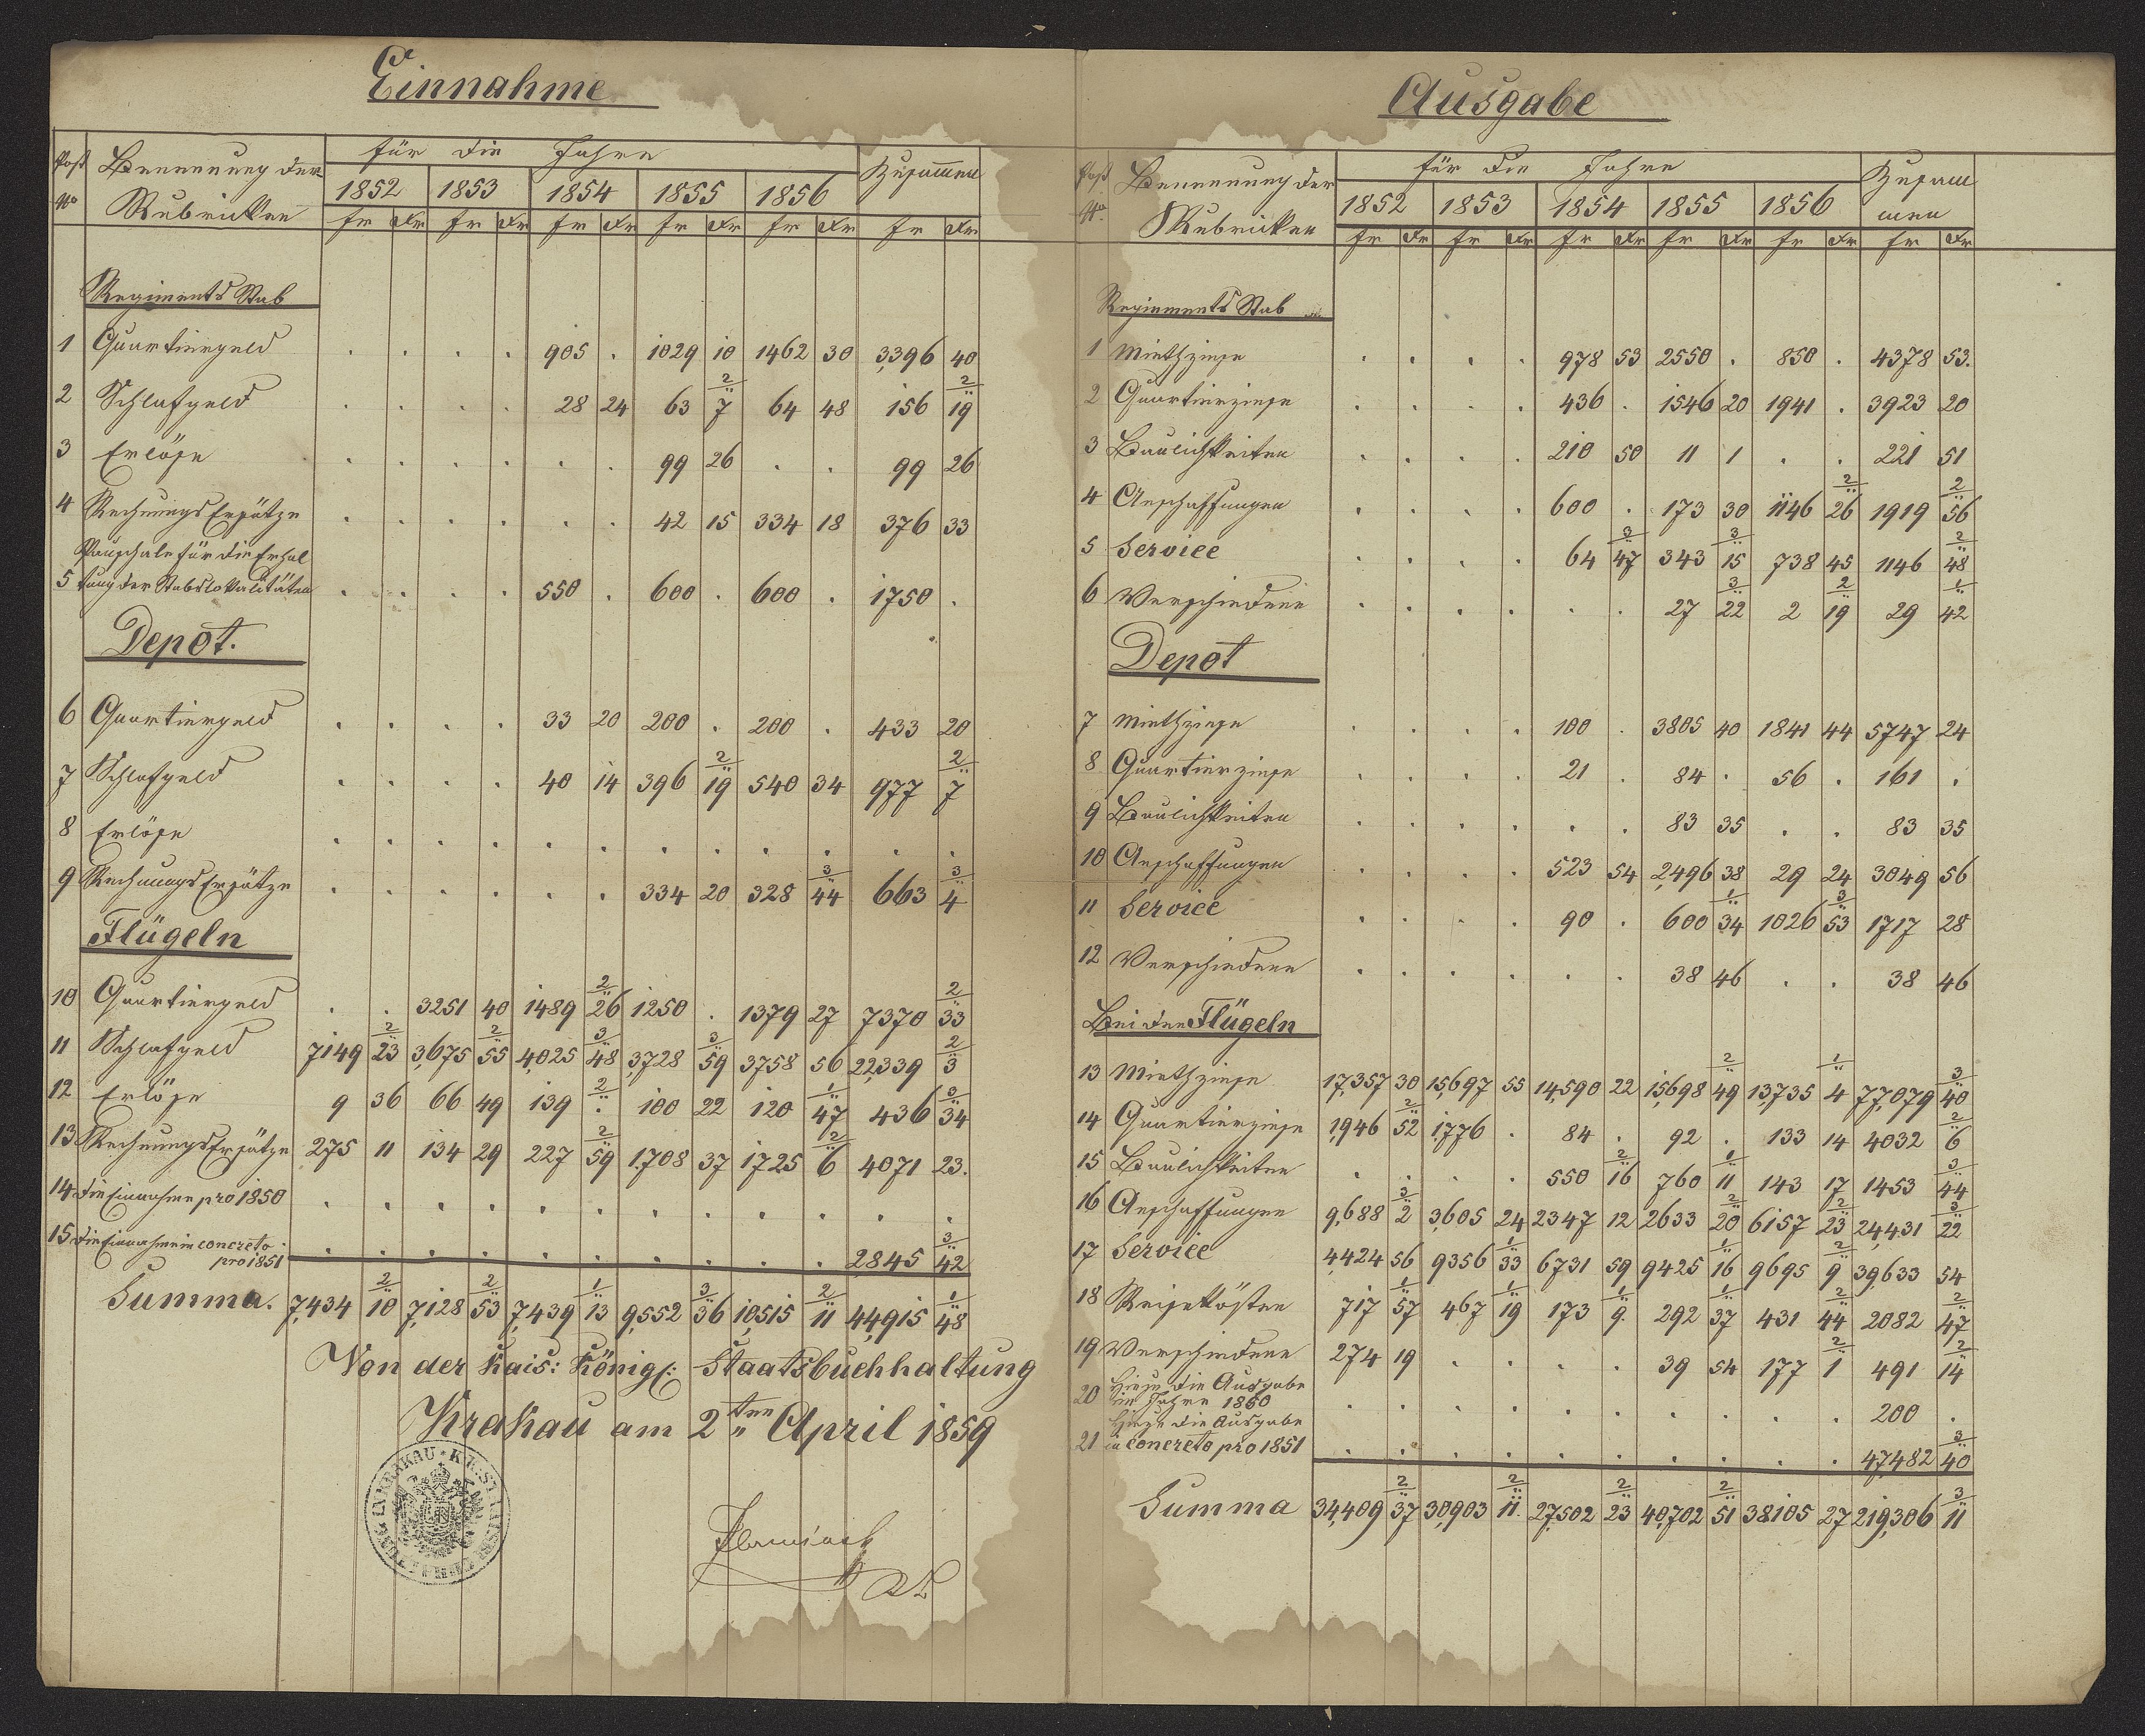 Einnahme
Post No Benennung der Rubricken für die Jahre Zusammen
1852 1853 1854 1855 1856
fr xr fr xr fr xr fr xr fr xr fr xr
Regiments Stab
1 Quartiergeld . . . . 905 . 1029 10 1462 30 3,396 40
2 Schlafgeld . . . . 28 24 63 7 2/.. 64 48 156 19 2/..
3 Erlöse . . . . . . 99 26 . . 99 26
4 Rechnungs Ersätze . . . . . . 42 15 334 18 376 33
Pauschale für die Erhal
5 tung der Stabslokalitäten . . . . 550 . 600 . 600 . 1750 .
Depot.
6 Quartiergeld . . . . 33 20 200 . 200 . 433 20
7 Schlafgeld . . . . 40 14 396 19 2/.. 540 34 977 7 2/..
8 Erlöse . . . . . . . . . . . .
9 Rechnungs Ersätze . . . . . . 334 20 328 44 3/.. 663 4 3/..
Flügeln
10 Quartiergeld . . 3251 40 1489 26 2/.. 1250 . 1379 27 7370 33 2/..
11 Schlafgeld 7149 23 2/.. 3,675 55 2/.. 4,025 48 3/.. 3,728 59 3/.. 3758 56 22,339 3 2/..
12 Erlöse 9 36 66 49 139 . 2/.. 100 22 120 47 1/.. 436 34 3/..
13 Rechnungs Ersätze 275 11 134 29 227 59 2/.. 1,708 37 1725 6 2/.. 4071 23.
14 die Einnahme pro 1850 . . . . . . . . . . . .
15 die Einnahme in concreto
pro 1851 . . . . . . . . . . 2845 42 3/..
Summa. 7,434 10 2/.. 7,128 53 2/.. 7,439 13 1/.. 9,552 36 3/.. 10,515 11 2/.. 44,915 48 1/..
Von der Kais: Königl: Staatsbuchhaltung
Krakau am 2ten April 1859
Ausgabe
Post No. Benennung der Rubricken für die Jahre Zusam
men
1852 1853 1854 1855 1856
fr xr fr xr fr xr fr xr fr xr fr xr
Regiments Stab
1 Miethzinse . . . . 978 53 2550 . 850 . 4378 53.
2 Quartierzinse . . . . 436 . 1546 20 1941 . 3923 20
3 Baulichkeiten . . . . 210 50 11 1 . . 221 51
4 Anschaffungen . . . . 600 . 173 30 1146 26 2/.. 1919 56 2/..
5 Service . . . . 64 47 3/.. 343 15 3/.. 738 45 1146 48 2/..
6 Verschiedene . . . . . . 27 22 3/.. 2 19 2/.. 29 42 1/..
Depot
7 Miethzinse . . . . 100 . 3805 40 1841 44 5747 24
8 Quartierzinse . . . . 21 . 84 . 56 . 161 .
9 Baulichkeiten . . . . . . 83 35 . . 83 35
10 Anschaffungen . . . . 523 54 2,496 38 29 24 3049 56
11 Service . . . . 90 . 600 34 1/.. 1026 53 3/.. 1717 28
12 Verschiedene . . . . . . 38 46 . . 38 46
Bei den Flügeln
13 Miethzinse 17,357 30 15,697 55 14,590 22 15,698 49 2/.. 13,735 4 1/.. 77,079 40 3/..
14 Quartierzinse 1,946 52 2/.. 1,776 . 84 . 92 . 133 14 4032 6 2/..
15 Baulichkeiten . . . . 550 16 2/.. 760 11 1/.. 143 17 1453 44 3/..
16 Anschaffungen 9,688 2 3/.. 3,605 24 2347 12 2633 20 2/.. 6157 23 2/.. 24,431 22 3/..
17 Service 4,424 56 9356 33 1/.. 6731 59 9425 16 1/.. 9695 9 2/.. 39,633 54
18 Reisekösten 717 57 1/.. 467 19 1/.. 173 9. 1/.. 292 37 1/.. 431 44 2/.. 2082 47 2/..
19 Verschiedene 274 19 . . . . 39 54 177 1 2/.. 491 14 2/..
Hiezu die Ausgabe
20 im Jahre 1850 . . . . . . . . . . 200 .
Hiezu die Ausgabe
21 in concreto pro 1851 . . . . . . . . . . 47,482 40 3/..
Summa 34,409 37 2/.. 30,903 11. 2/.. 27,502 23 2/.. 40,702 51 2/.. 38105 27 219,306 11 3/..